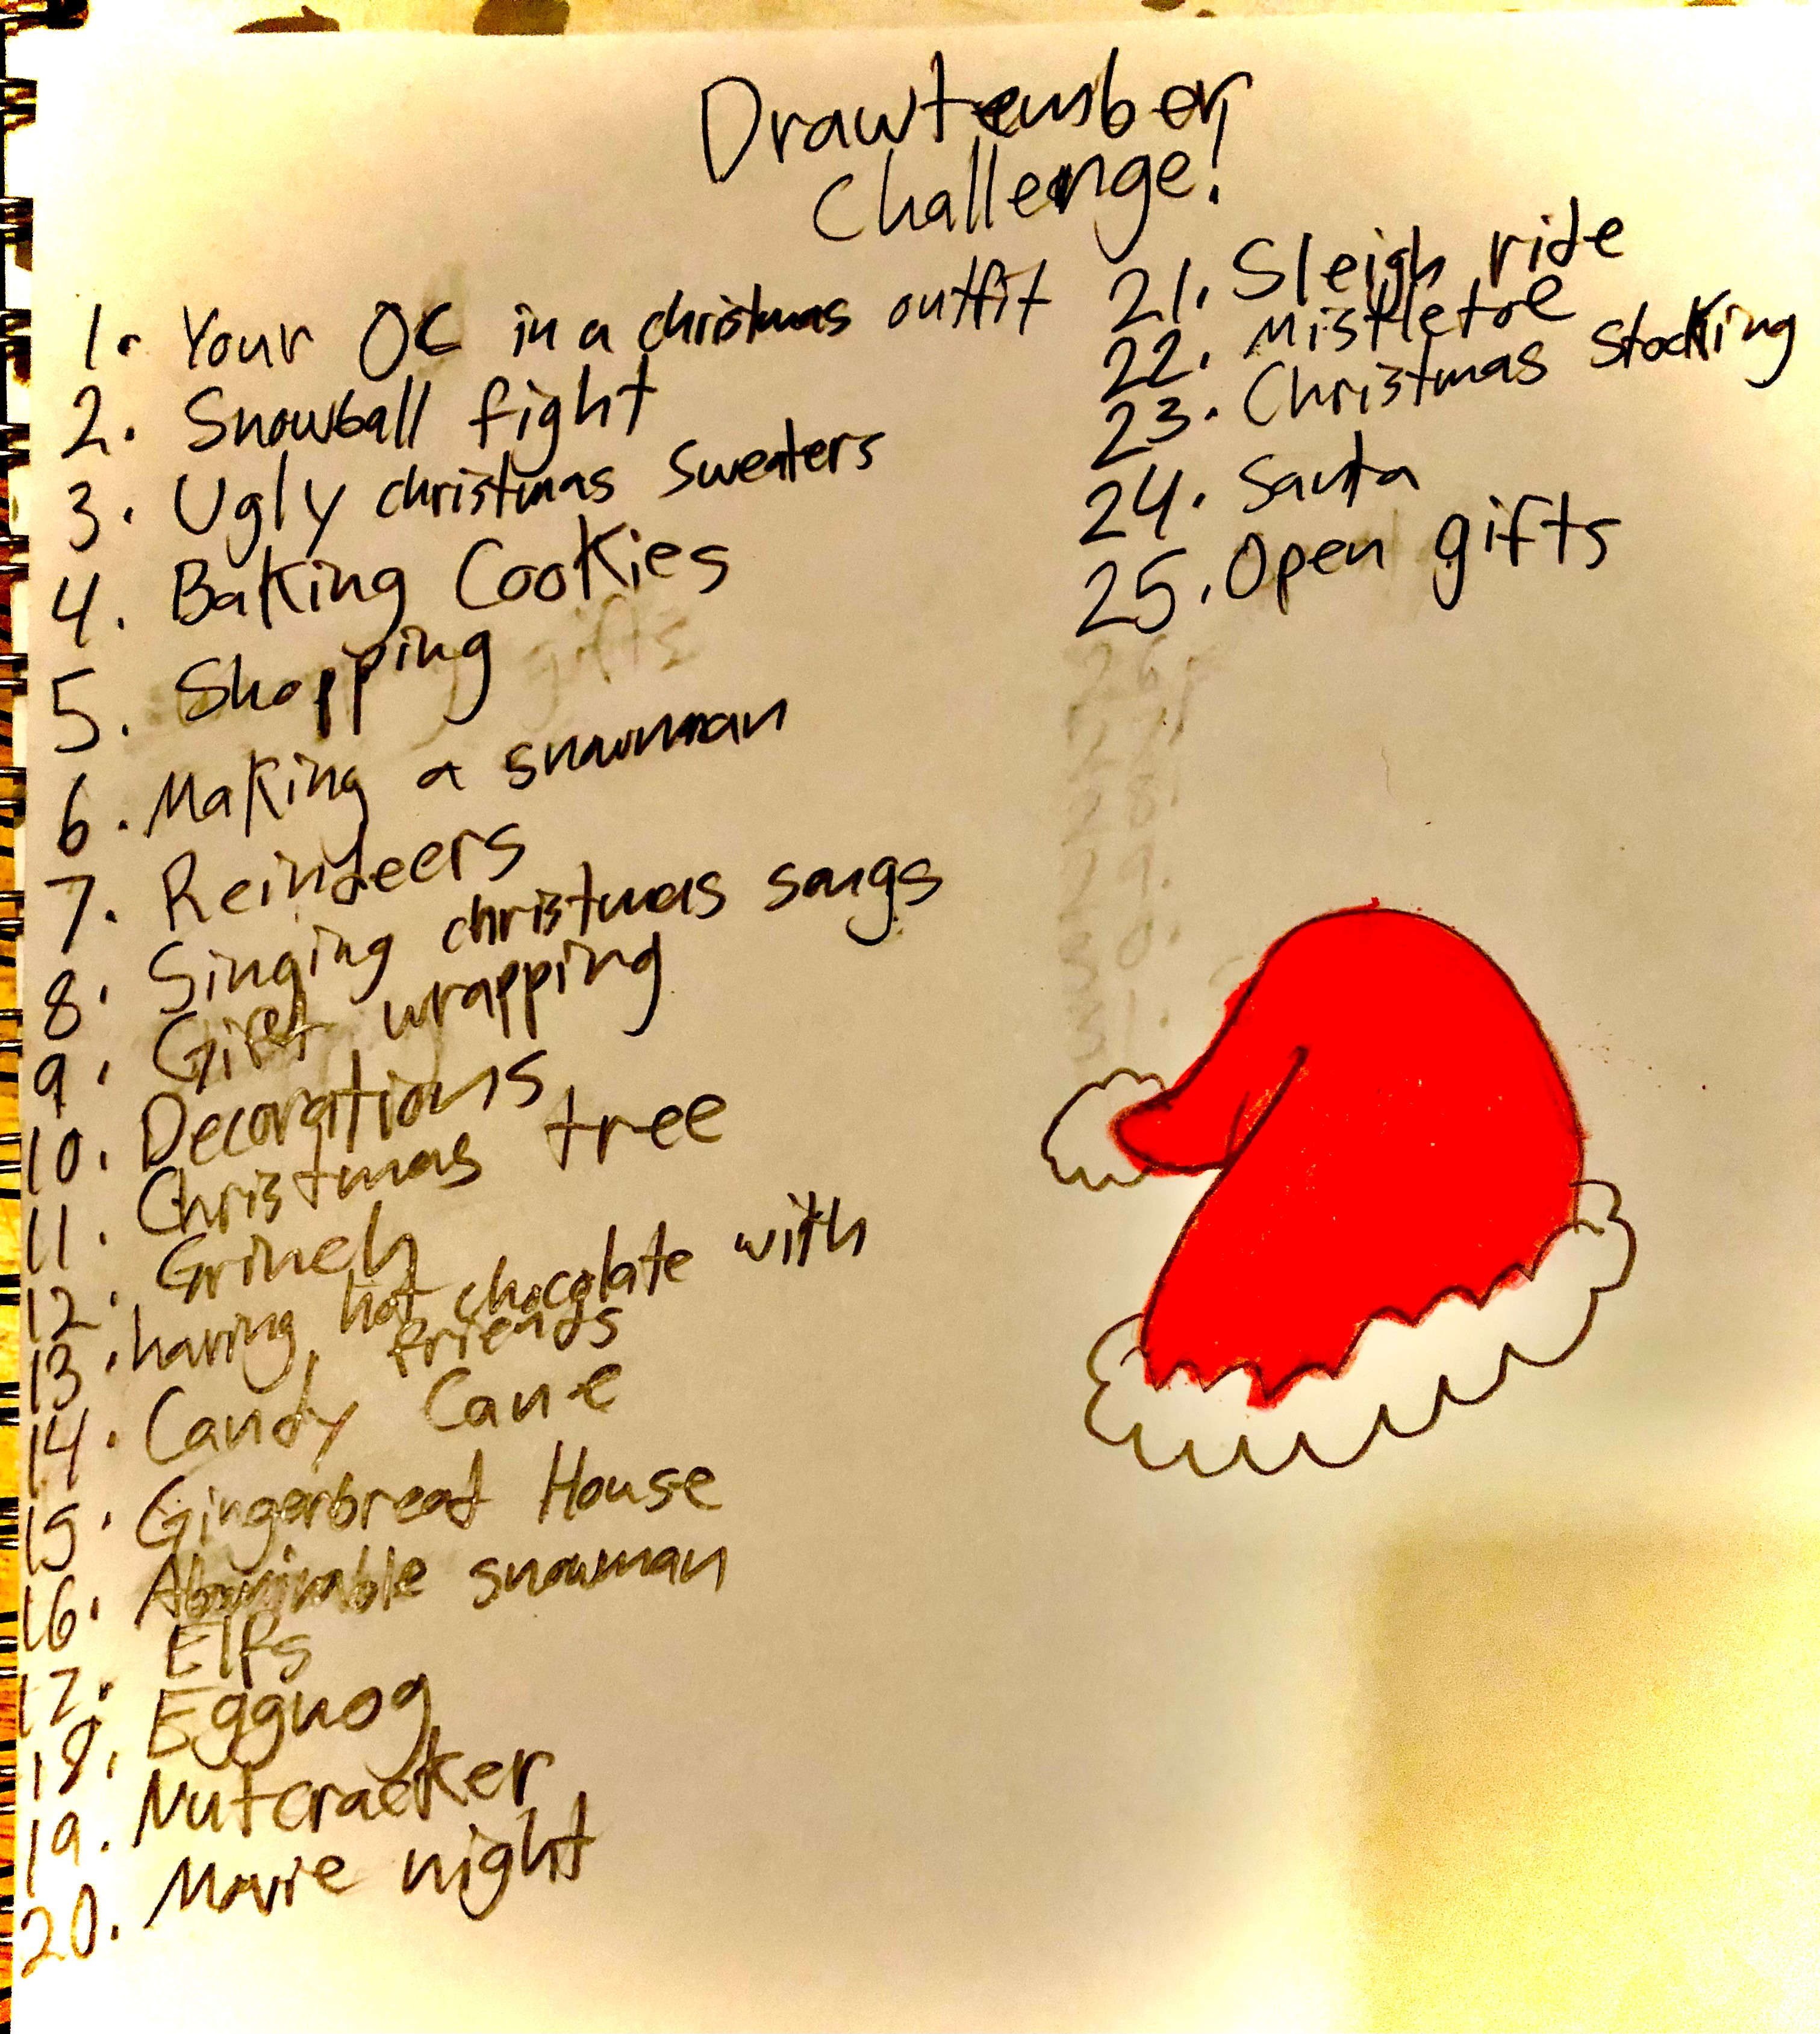 Drawtember
Challenge!
1. Your OC in a christmas outfit
2. Snowball fight
3. Ugly christmas sweaters
4. Baking Cookies
5. Shopping gifts
6. Making a snowman
7. Reindeers
8. Singing christmas songs
9. Gift wrapping
10. Decorations
11. Christmas tree
12. Grinch
13. having hot chocolate with
friends
14. Candy Cane
15. Gingerbread House
16. Abominable snowman
17. Elfs
18. Eggnog
19. Nutcracker
20. Movie night
21. Sleigh ride
22. Mistletoe
23. Christmas Stocking
24. Santa
25. Open gifts
26.
27.
28.
29.
30.
31.